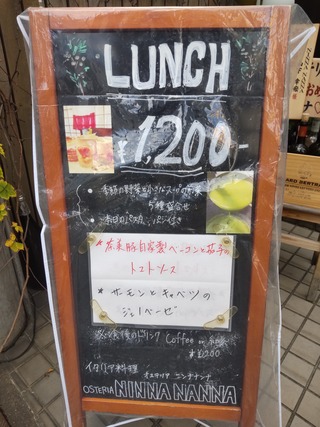 LUNCH
¥1,200-
・季節の野菜と小さなスープの前菜
5種盛合せ
・本日のパスタ パン付き
* 茨美豚自家製ベーコンと茄子の
トマトソース
* サーモンとキャベツの
ジェノベーゼ
お食後のドリンク Coffee or 紅茶
+¥200
イタリア料理
オステリア ニンナナンナ
OSTERIA NINNA NANNA